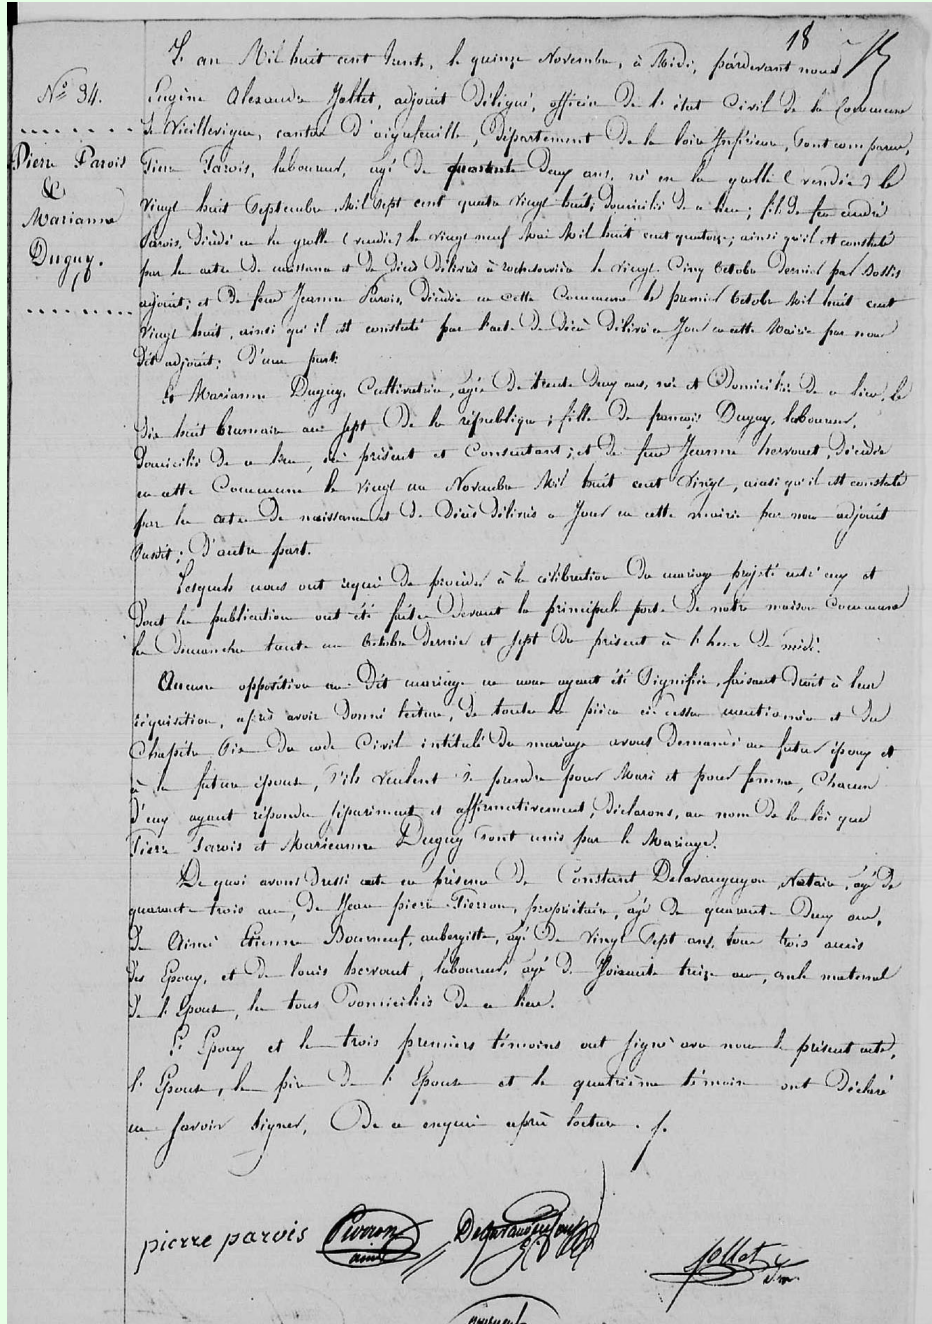 18
N.o 34.
Pierre Parois
&
Marianne
Duguy.
L'an Mil huit cent trente, le quinze Novembre, à Midi, pardevant nous
Eugène Alexandre Jollet, adjoint délégué, officier de l'état Civil de la Commune
de Vieillevigne, canton d'aigrefeuille, département de la loire Inférieure, Sont comparus,
Pierre Parois, laboureur, agé de quarante Deux ans, né en la grolle (vendée) le
Vingt huit Septembre Mil Sept cent quatre vingt huit, domicilié de ce lieu; fils de feu andré
Parois, Décédé en la grolle (vendée) le vingt neuf Mai Mil huit cent quatorze; ainsi qu'il est constaté
par les actes de naissance et de Décès délivrés à rocheservière le vingt Cinq Octobre Dernier par
adjoint; et de feue Jeanne Parois, Décédée en cette Commune le premier Octobre Mil huit cent
Vingt huit, ainsi qu'il est constaté par l'acte de Décès délivré ce Jour en cette Mairie par nous
dit adjoint; D'une part.
Et Marianne Duguy, Cultivatrice, agée De trente Deux ans, née et Domiciliée De ce lieu, le
dix huit brumaire an Sept De la république; fille de françois Duguy, laboureur,
Domicilié de ce lieu, ici présent et Consentant; et de feue Jeanne hervouet, Décédée
en cette Commune le vingt un Novembre Mil huit cent Vingt, ainsi qu'il est constaté
par les actes De naissance et de Décès délivrés ce Jour en cette mairie par nous adjoint
Susdit; D'autre part.
Lesquels nous ont requis De procéder à la célébration Du mariage projeté entr'eux et
Dont les publications ont été faites Devant la principale porte De notre maison Commune
les dimanches trente un Octobre dernier et Sept du présent à l'heure De midi.
Aucune opposition au Dit mariage ne nous ayant été Signifiée, faisant Droit à leur
réquisition, après avoir Donné lecture, De toutes les pièces ci-dessus mentionnées et du
Chapitre Six du code Civil intitulé Du mariage avons Demandé au futur époux et
à la future épouse, S'ils veulent Se prendre pour Mari et pour femme, Chacun
D'eux ayant répondu Séparément et affirmativement, Déclarons, au nom de la loi que
Pierre Parois et Marieanne Duguy Sont unis par le Mariage.
De quoi avons Dressé acte en présence de Constant Delavauguyon, Notaire, agé De
quarante trois ans, De Jean pierre Pierron, propriétaire, agé De quarante Deux ans,
De Aimé Etienne Bourneuf, aubergiste, agé De Vingt Sept ans, tous trois amis
Des Epoux, et De louis hervouet, laboureur, agé De Soixante treize ans, oncle maternel
De l'Epouse, les tous Domiciliés De ce lieu.
L'Epoux et les trois premiers témoins ont Signé avec nous le présent acte,
l'Epouse, le père De l'Epouse et le quatrième témoin ont Déclaré
ne Savoir Signer, De ce enquis après lecture.
pierre parois Pierron ainé Delavauguyon Jollet